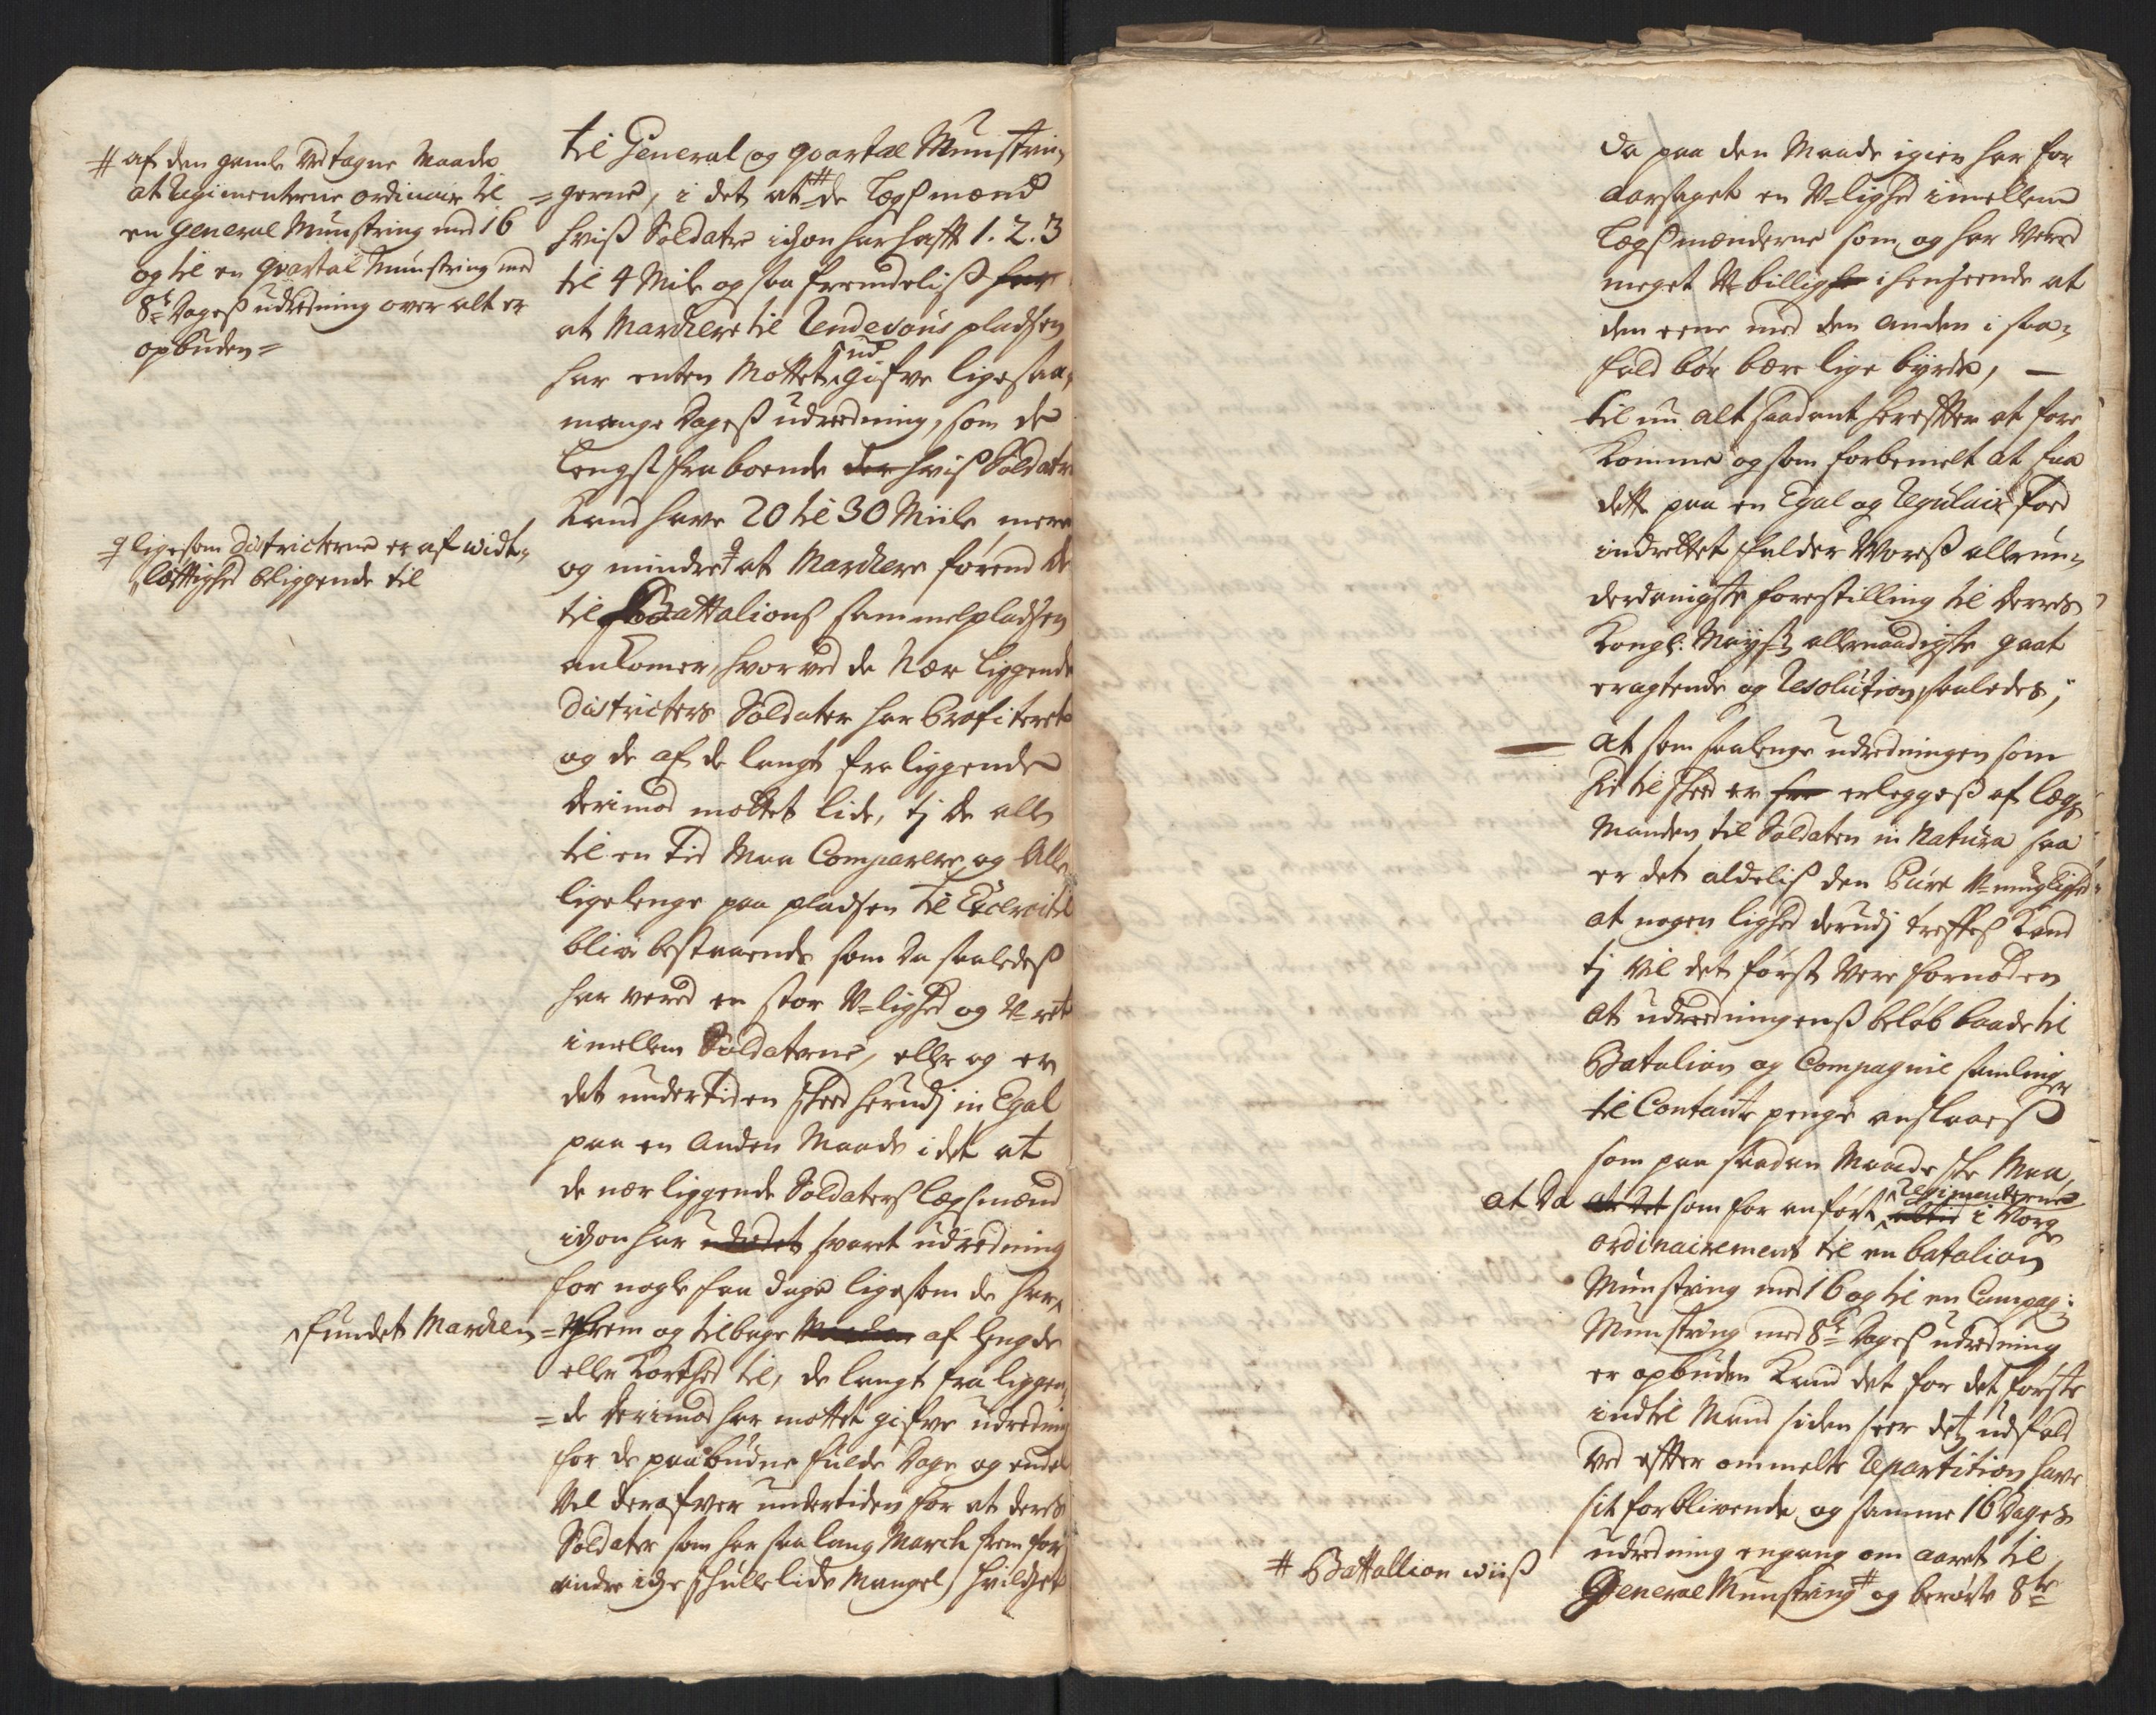 # af den gamle Vedtagne Maade
at Regimenterne ordinair til
en General Munstring med 16
og til en qvartal Munstring med
8te Dages udredning over alt er
opbuden=
ligesom Districterne er af widt„
„løfftighed beliggende til
fundet Marchen
til General og qvartal Munstrin„
=gerne, i det at # de Lægsmænd
hviss Soldater ichon har hafft 1. 2. 3
til 4 Mile og saa fremdeliss har
at Marchere til Rendevous pladsen
har enten Mottet ud gifve ligesaa„
mange Dagess udredning, som de
Lengst fra boende der hvis Soldater
kand have 20 til 30 Miile mere
og mindre at Marchere førend de
til Battalions sammelpladsen
ankomer, hvorved de Nær liggende
Districters Soldater har Profiteret
og de af de langt fra liggende
derimod mottet lide, tj de alle
til en Tid Maa Comparere og Alle
ligelenge paa pladsen til Exercitie
blive bestaaende som da saaledess
har vered en stor V=lighed og V=ret
imellem Soldaterne, eller og er
det undertiden skeed herudj in Egal
paa en Anden Maade i det at
de nær liggende Soldaters Lægsmænd
ichon har udredet svaret udredning
for nogle faa dage ligesom de har
=frem og tilbage Marchen af Lengde
eller Korthed til, de langt fra liggen„
=de derimod har mottet gifve udredning
for de paabudne fulde Dage og endel
Vel derofver undertiden for at deres
Soldater som har saa lang March frem for
andre iche skulle lide Mangel, hvilchet
da paa den Maade igien har for
aarsaget en V=lighed imellem
Lægsmænderne som og har vered
meget V=billig i henseende at
den eene med den anden i saa„
fald bør bære lige byrde, —
til nu alt saadant herefter at fore
komme og som forbemelt at faa
dette paa en Egal og Regulair foed
indrettet falder Woress allerun„
derdanigste forestilling til Deres
Kongl: Mayst: allernaadigste gaat
eragtende og Resolution saaledes,
— at som saalenge udredningen som
hid til skeed er erleggess af Læg„
Manden til Soldaten in Natura saa
er det aldeliss den Pure V=muglighed
at nogen lighed derudj treffes kand
tj vil det først vere fornøden
at udredningenss beløb baade til
Batalion og Compagnie samlinger
til Contante penge anslaaess
som paa saadan Maade ske Maa,
at da at det som for anført Regimenterne altid i Norge
ordinairement til en batalion
Munstring med 16 og til en Compag:
Munstring med 8te Dages udredning
er opbuden kand det for det første
indtil Mand siden seer detz udfald
ved efter ommelte Repartition have
sit forblivende og samme 16 Dages
udredning engang om aaret til
General Munstring # og berørte 8te
# Battallion wiiss